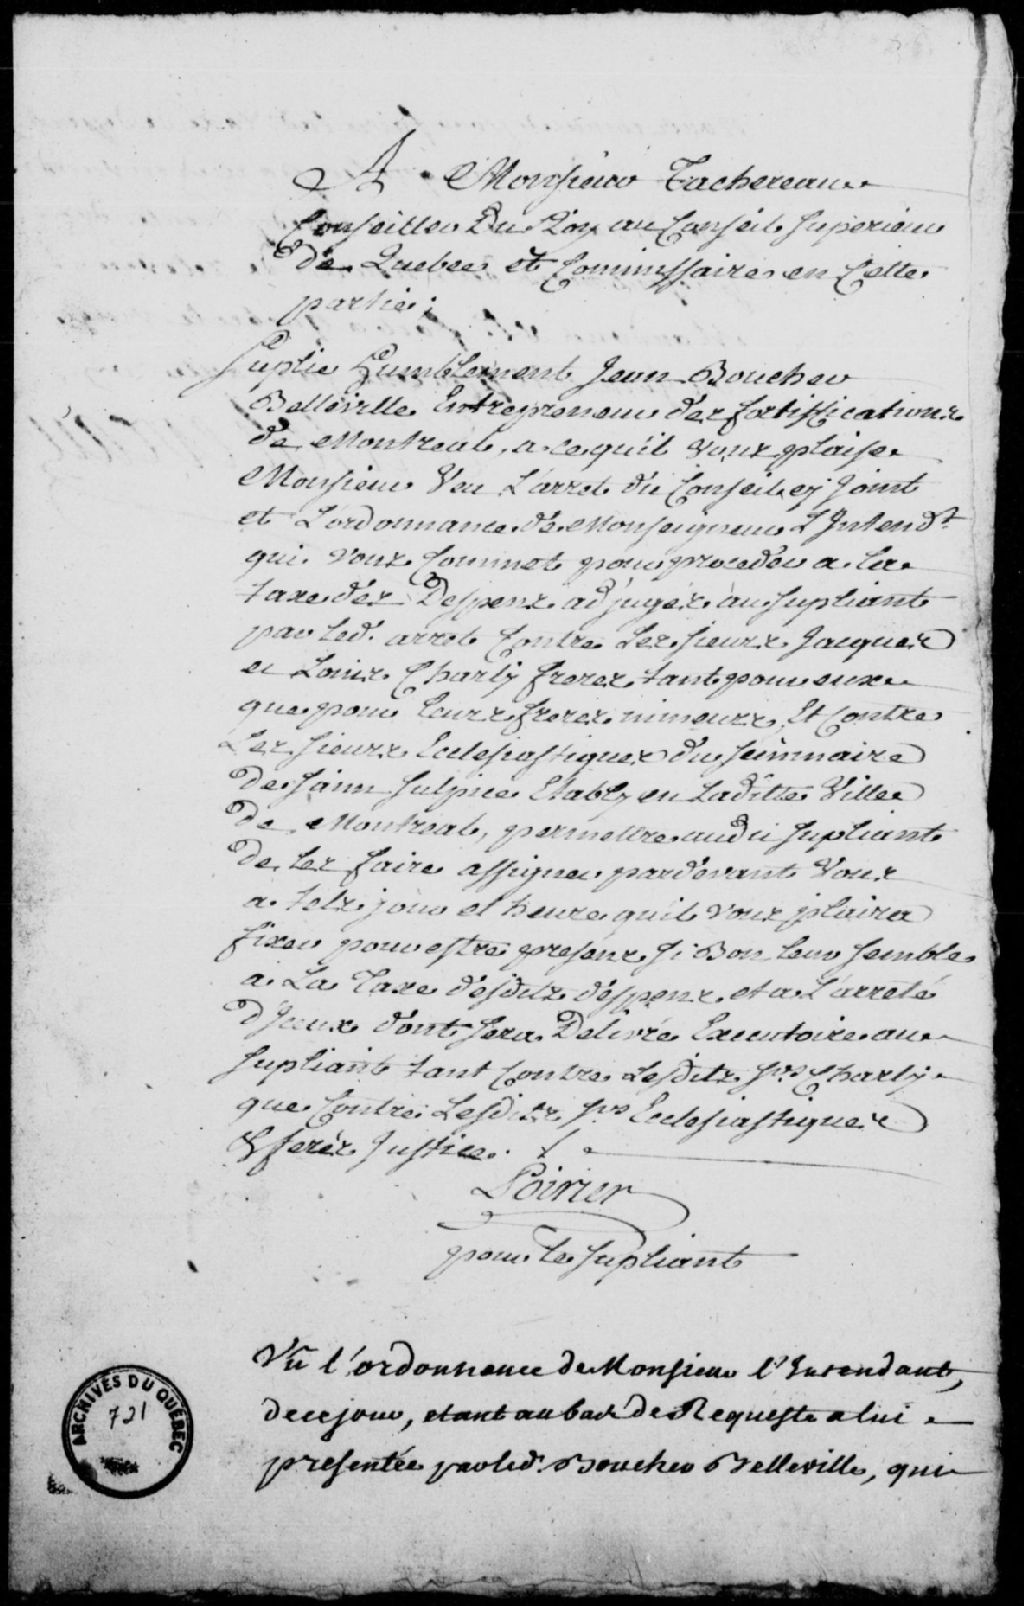 A Monsieur Tachereau
Conseiller Du Roy au Conseil Superieur
De Quebec et Commissaire en Cette
partie;
Suplie Humblement Jean Boucher
Belleville Entrepreneur des fortiffications
de Montreal, a ce qu'il vous plaise
Monsieur Veu L'arret du Conseil cy Joint
et L'ordonnance de Monseigneur L'Intend.t
qui vous Commet pour proceder a la
taxe des Despens adjugéz au supliant
par led. arret Contre Les sieurs Jacques
et Louis Charly freres tant pour eux
que pour leurs freres mineurs, Et Contre
Les sieurs Eclesiastiques du seminaire
De saint sulpice Etably en Laditte Ville
De Montreal, permettre audit supliant
De les faire assigner pardevant Vous
a tels jour et heure quil vous plaira
fixer pour estre presens si Bon leur semble
a La Taxe desdits despens et a L'arreté
D'Iceux dont sera Delivré Executoire au
supliant tant Contre Lesdits Srs Charly
que Contre Lesdits Srs Eclesiastiques
& feréz Justice.
Poirier
pour le supliant
Vû l'ordonnance de Monsieur l'Intendant,
de ce jour, etant au bas de Requeste a lui
presentée par led. Boucher Belleville, qui
ARCHIVES DU QUÉBEC
721